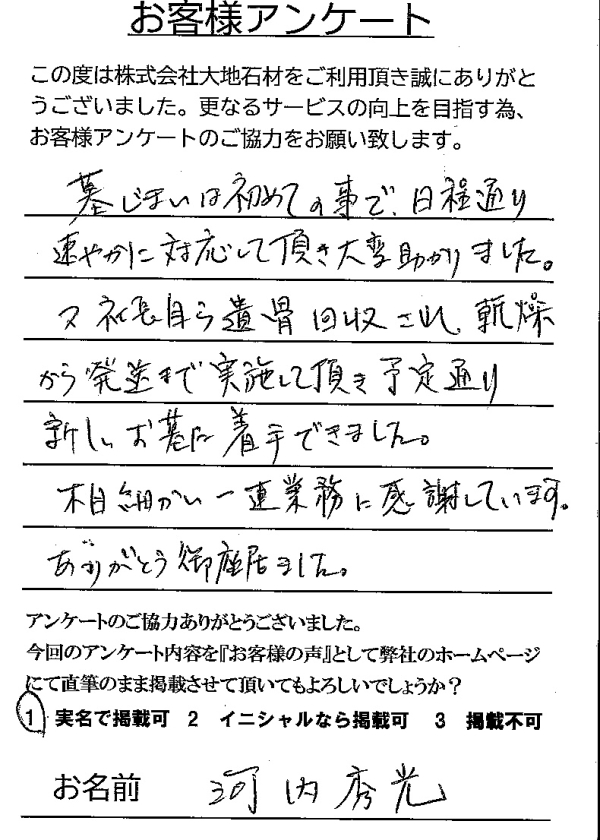 お客様アンケート
この度は株式会社大地石材をご利用頂き誠にありがと
うございました。更なるサービスの向上を目指す為、
お客様アンケートのご協力をお願い致します。
墓じまいは初めての事で、日程通り
速やかに対応して頂き大変助かりました。
又社長自ら遺骨回収され、乾燥
から発送まで実施して頂き予定通り
新しいお墓に着手できました。
木目細かい一連業務に感謝しています。
ありがとう御座居ました。
アンケートのご協力ありがとうございました。
今回のアンケート内容を『お客様の声』として弊社のホームページ
にて直筆のまま掲載させて頂いてもよろしいでしょうか？
1 実名で掲載可 2 イニシャルなら掲載可 3 掲載不可
お名前 河内秀光